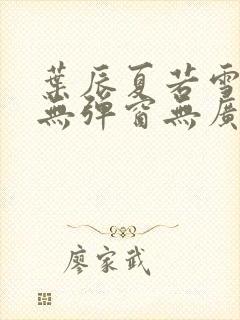 葉辰夏若雪
無彈窗無廣
廖家武